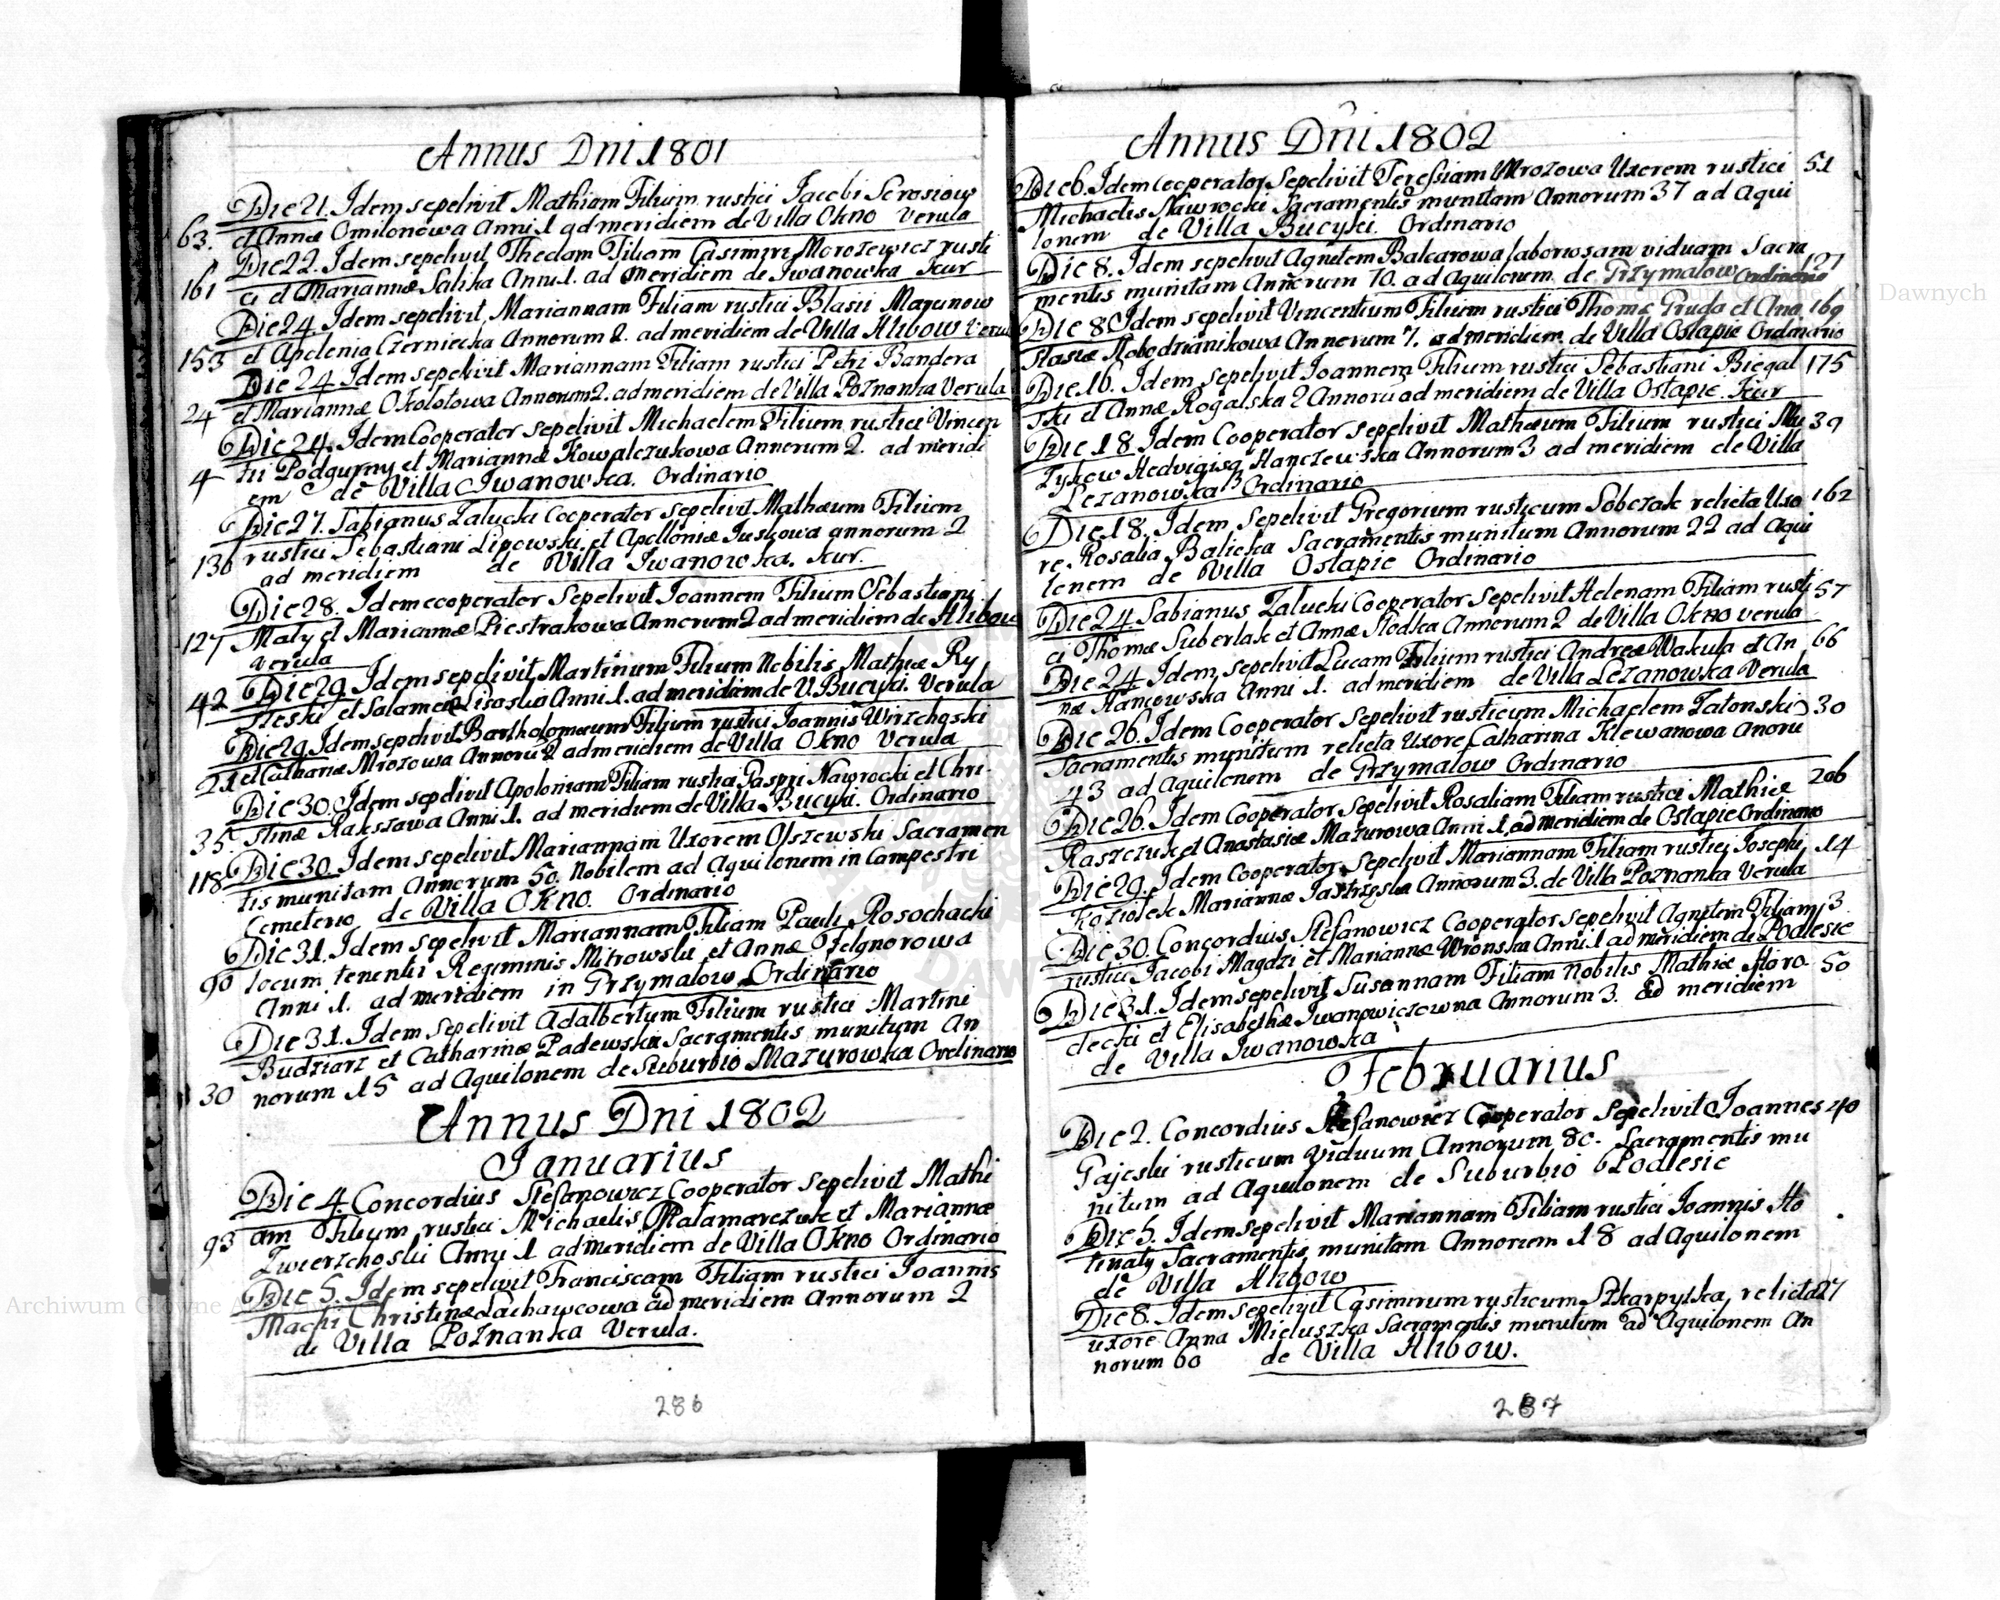 Annus Dni 1801
Die 21. Idem sepelivit Mathiam Filium rustici Jacobi
63. et Annæ Omilonowa Anni 1 ad meridiem de Villa Okno Verula
Die 22. Idem sepelivit Theclam Filiam Casimiri Morozewicz rusti
161 ci et Mariannæ Saliha Anni 1. ad meridiem de Iwanowka
Die 24 Idem sepelivit Mariannam Filiam rustici Blasii Mazurow
153 et Apolenia Czerniecka Annorum 2. ad meridiem de Villa Hlibow Veru
Die 24 Idem sepelivit Mariannam Filiam rustici Petri Bandera
24 et Mariannæ Okolotowa Annorum 2. ad meridiem de Villa Poznanka Verula
Die 24. Idem Cooperator sepelivit Michaelem Filium rustici Vincen
4 tii Podgurny et Mariannæ Kowalczukowa Annorum 2. ad meridi
em de Villa Iwanowka. Ordinario
Die 27. Fabianus Zalucki Cooperator sepelivit Mathæum Filium
136 rustici Sebastiani Lipowski et Apolloniæ Juskowa annorum 2
ad meridiem de Villa Iwanowka.
Die 28. Idem cooperator Sepelivit Joannem Filium Sebastiani
127 Maly et Mariannæ Piestrakowa Annorum 2 ad meridiem de Hlibow
verula
42 Die 29. Idem sepelivit Martinum Filium Nobilis Mathiæ Ry
et Salomeæ Anni 1. ad meridiem de V. Bucyki. Verula
Die 29. Idem sepelivit Bartholomæum Filium rustici Joannis Wirzchoski
21 et Catharinæ Mrozowa Annorū 2 ad meridiem de Villa Okno Verula
Die 30. Idem sepelivit Apoloniam Filiam rustici Gaspri Nawrocki et Chri-
35 stinæ Rakszawa Anni 1. ad meridiem de Villa Bucyki. Ordinario
118 Die 30. Idem sepelivit Mariannam Uxorem Olszewski Sacramen
tis munitam Annorum 50. Nobilem ad Aquilonem in Campestri
Cemeterio de Villa Okno. Ordinario
Die 31. Idem sepelivit Mariannam Filiam Pauli Rosochachi
90 locum tenentis Regiminis Mitrowski et Annæ Felgnorowa
Anni 1. ad meridiem in Przymalow Ordinario
Die 31. Idem Sepelivit Adalbertum Filium rustici Martini
Budziarz et Catharinæ Padewska Sacramentis munitum An
30 norum 15 ad Aquilonem de Suburbio Mazurowka Ordinario
Annus Dni 1802
Januarius
Die 4. Concordius Stefanowicz Cooperator Sepelivit Mathi
93 am Filium rustici Michaelis Palamarczuk et Mariannæ
Zwierzchoski Anni 1 ad meridiem de Villa Okno Ordinario
Die 5. Idem sepelivit Franciscam Filiam rustici Joannis
Machi Christinæ ad meridiem Annorum 2
de Villa Poznanka Verula.
286
Annus Dni 1802
Die 6. Idem cooperator Sepelivit Teressiam Mrozowa Uxorem rustici 51
Michaelis Nawrocki Sacramentis munitam Annorum 37 ad Aqui
lonem de Villa Bucyki. Ordinario
Die 8. Idem sepelivit Agnetem Balcarowa laboriosam viduam Sacra 127
mentis munitam Annorum 70. ad Aquilonem de Przymalow Ordinario
Die 8 Idem sepelivit Vincentium Filium rustici Thomæ Gruda et Ana 169
stasiæ Slobodzianikowa Annorum 7. ad meridiem de Villa Ostapie Ordinario
Die 16. Idem sepelivit Joannem Filium rustici Sebastiani Biegal 175
ski et Annæ Rogalska 2 Annorū ad meridiem de Villa Ostapie.
Die 18 Idem Cooperator sepelivit Mathæum Filium rustici Mu 39
zykow Hedvigis Hanczewska Annorum 3 ad meridiem de Villa
Lezanowska Ordinario
Die 18. Idem Sepelivit Gregorium rusticum Sobczak relicta Uxo 162
re Rosalia Balicka Sacramentis munitum Annorum 22 ad Aqui
lonem de Villa Ostapie Ordinario
Die 24 Fabianus Zalucki Cooperator Sepelivit Helenam Filiam rusti 57
ci Thomæ Suberlak et Annæ Slodka Annorum 2 de Villa Okno verula
Die 24 Idem sepelivit Lucam Filium rustici Andreæ Wakula et An 66
næ Hancowska Anni 1. ad meridiem de Villa Lezanowska Verula
Die 26. Idem Cooperator Sepelivit rusticum Michaelem Zatonski 30
Sacramentis munitum relicta Uxore Catharina Klewanowa Anorū
43 ad Aquilonem de Przymalow Ordinario
Die 26. Idem Cooperator Sepelivit Rosaliam Filiam rustici Mathiæ 206
Raszczuk et Anastasiæ Mazurowa Anni 1. ad meridiem de Ostapie Ordinario
Die 29. Idem Cooperator Sepelivit Mariannam Filiam rustici Josephi 14
Koziolek Mariannæ Jastrzęska Annorum 3. de Villa Poznanka Verula
Die 30. Concordius Stefanowicz Cooperator sepelivit Agnetem Filiam 3
rustici Jacobi Magdzi et Mariannæ Wronska Anni 1 ad meridiem de Podlesie
Die 31. Idem sepelivit Susannam Filiam Nobilis Mathiæ Horo- 50
decki et Elisabethæ Iwanowiczowna Annorum 3. ad meridiem
de Villa Iwanowska
Februarius
Die 2. Concordius Stefanowicz Cooperator Sepelivit Joannes 40
Gajeski rusticum Viduum Annorum 80. Sacramentis mu
nitum ad Aquilonem de Suburbio Podlesie
Die 5. Idem sepelivit Mariannam Filiam rustici Joannis Ho
tinaty Sacramentis munitam Annorum 18 ad Aquilonem
de Villa Hlibow
Die 8. Idem Sepelivit Casimirum rusticum Szkarpytka, relicta 27
uxore Anna Mieluszka Sacramentis munitum ad Aquilonem An
norum 60 de Villa Hlibow.
287
Archiwum Główne Akt Dawnych